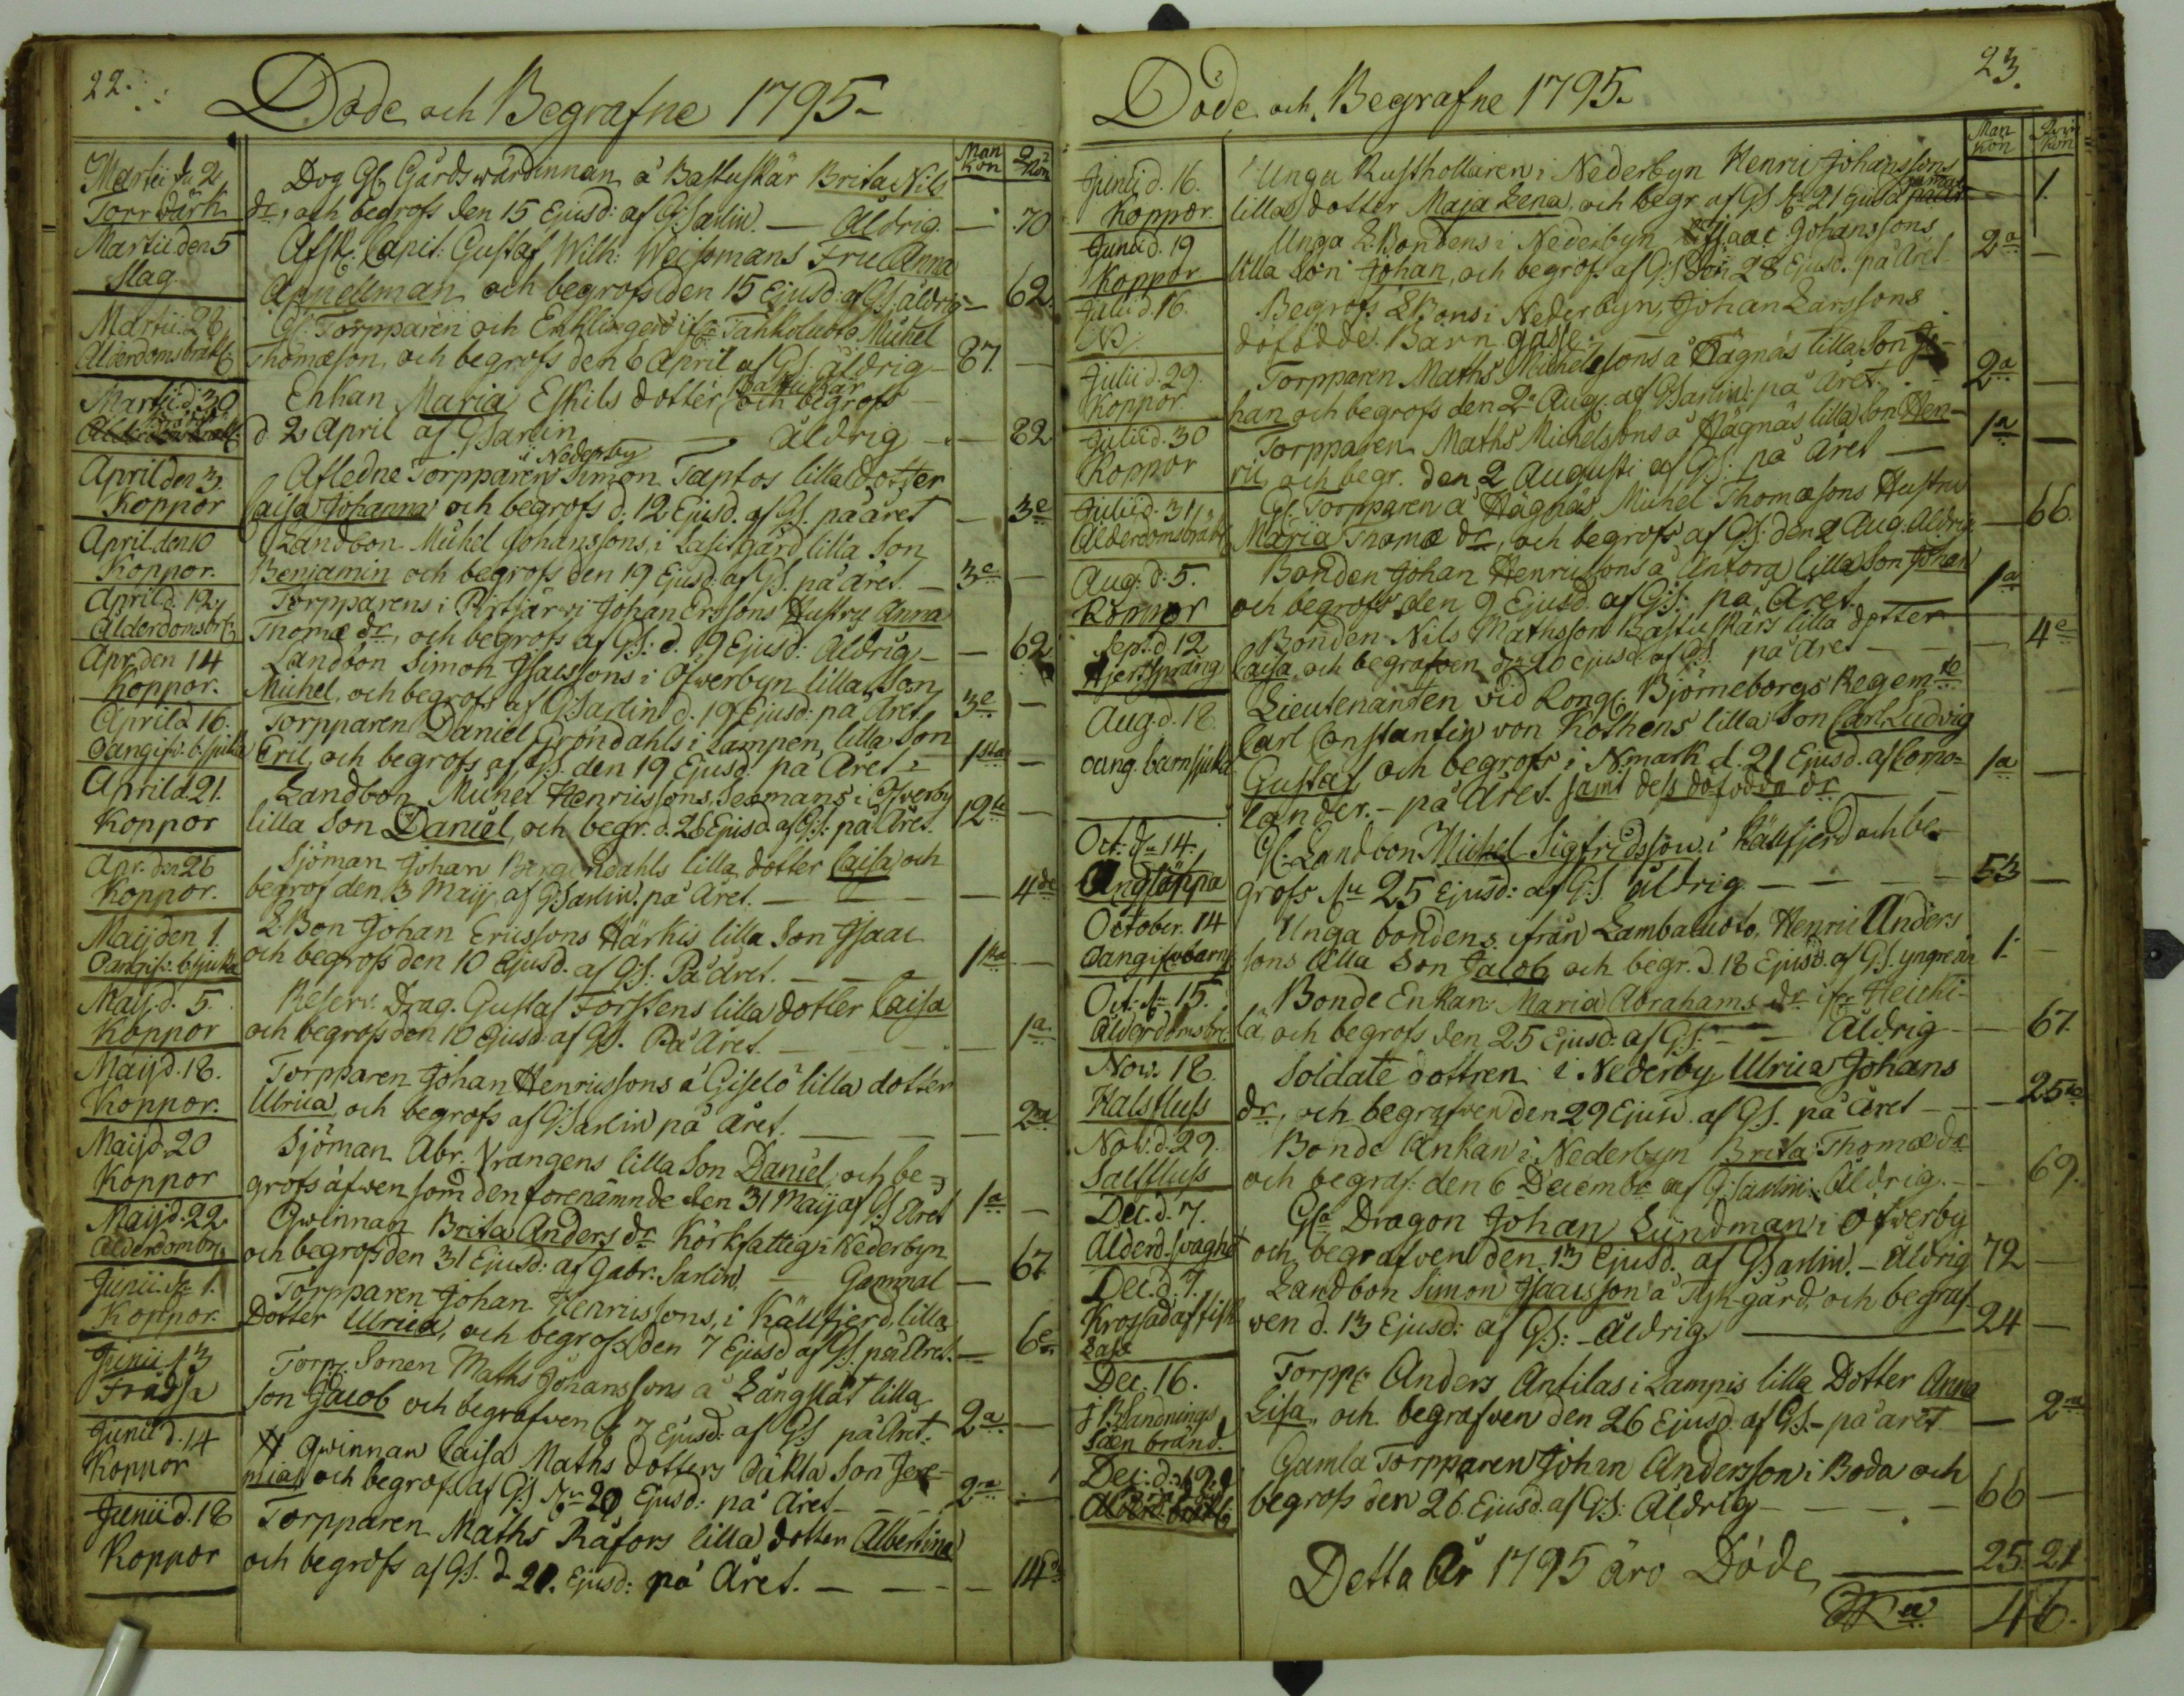 22.
Döde och Begrafne 1795
Man Kön
Martii d 2 Dog Gl. Gårdswärdinnan å Bastuskär Brita Nils
Torrwärk dr, och begrofs den 15 Ejusd: af G: Sarlin. — Åldrig. — 70
Martii den 5 Afsk. Capit: Gustaf Wilh: Weissmans Fru Anna
Slag Appellman och begrofs den 15 Ejusd: af G:S. åldrig — 62.
Martii 28 Gl. Torpparen och Enklingen Michel
Ålderdomsbräckl Thomæson, och begrofs den 6 April af G:S: åldrig — 87.
Martii d: 30 Enkan Maria Eskils dotter Bastuskär och begrofs
d 2 April af G Sarlin — åldrig — 82
April den 3. Afledne Torpparen i Nederby Simon Tantos lilla dotter
Koppor Caisa Johanna och begrofs d. 12 Ejusd. af G:S. på året — 3e
April. den 10 Landbon Michel Johanssons, i Lasisgård lilla Son
Koppor. Benjamin och begrofs den 19 Ejusd: af G:S. på Året. — 3e
April d. 12 Torpparens i Johan Erssons Hustru Anna
Ålderdomsbr: Thomæ dr, och begrofs af G:S: d. 19 Ejusd: Åldrig — 62
Apr. den 14 Landbon Simon Isacssons i Öfwerbyn lilla Son
Koppor. Michel, och begrofs af G: Sarlin d. 19 Ejusd: på Året 3e —
April d 16. Torpparen Daniel Gröndahls i Lampen, lilla Son
Oangifw: b: sjuka Eric, och begrofs af G:S. den 19 Ejusd: på Året 1sta —
April d 21. Landbon Michel Henricssons, Sesmans i Öfwerby
Koppor lilla Son Daniel, och begr. d. 26 Ejusd af G:S: på Året. 12te —
Apr. den 26 Sjöman Johan Bergendahls lilla dotter Caisa och
Koppor. begrof den 3 Maij af G: Sarlin. på Året. — 4de
Maij den 1. L:Bon Johan Ericssons Härkis lilla Son Isaac
Oangifw: b. sjuka och begrofs den 10 Ejusd. af G:S. På Året. — 1sta —
Maij. d. 5. Reserv. Drag. Gustaf Forstens lilla dotter Caisa
Koppor och begrofs den 10 Ejusd: af G:S. På Året. — 1a
Maij d. 18. Torpparen Johan Henricssons å Giselö lilla dotter
Koppor. Ulrica, och begrofs af G: Sarlin på Året. — 2ra
Maij d. 20 Sjöman Abr. Vrangens lilla Son Daniel, och be-
Koppor grofs äfwen som den forenämnde den 31 Maij af G:S Året 1a —
Maij d. 22 Qwinnan Brita Anders dr. Körkfattig i Nederbyn
Ålderdombr. och begrofs den 31 Ejusd: af Gabr: Sarlin — Gammal — 67.
Junii d 1. Torpparen Johan Henricssons, i Källfjerd, lilla
Koppor. Dotter Ulrica, och begrofs den 7 Ejusd af G:S. på Året. — 6e
Junii 13 Torp. Sonen Maths Johanssons å Långslät lilla
Frässa Son Jacob och begrafwen d. 7 Ejusd: af G:S på Året. 2a —
Junii d. 14 Qwinnan Caisa Maths dotters oäkta Son Jere-
Koppor mias och begrof. af G:S d 20 Ejusd: på Året — 2ra —
Junii d. 18 Torpparen Maths Råfors lilla dotter Albertina
Koppor och begrofs af G:S. d. 21. Ejusd: på Året. — 14d
23.
Döde och Begrafne 1795.
Man Kön Qwin Kön
Junii d. 16. Unga Rusthollaren i Nederbyn Henric Johanssons
Koppor. lilla dotter Maja Lena, och begr. af G:S d 21 Ejusd — 1.
Junii d. 19 Unga L:Bondens i Nederbyn Isaac Johanssons
Koppor lilla Son Johan, och begrofs af G:S den 28 Ejusd. på Året 2a —
Julii d. 16. Begrofs L:Bons i Nederbyn, Johan Larssons
N döfödde Barn gåsse.
Julii d. 29. Torpparen Maths Michelssons å Hägnäs lilla Son Jo-
Koppor. han och begrofs den 2a Aug. af G: Sarlin. på Året. 2a —
Julii d. 30 Torpparen Maths Michelssons å Hägnäs lilla Son Hen-
Koppor ric, och begr. den 2 Augusti af G:S: på Året — 1a —
Julii d. 31 Gl. Torparen å Hägnäs Michel Thomæsons Hustru
Ålderdomsbräckl Maria Thomæ dr, och begrofs af G:S: den 2 Aug. Åldrig — 66.
Aug: d: 5. Bonden Johan Henricsons å Antorg lilla Son Johan
Koppor och begrofs den 9 Ejusd. af G:S: på Året — 1a
Sept. d. 12 Bonden Nils Mathsson Bastuskärs lilla dotter
Hjertsprång Caisa, och begrafwen d: 20 ejusd. af G:S. på Året — 4e
Aug. d. 18. Lieutenanten vid Kongl. Björneborgs Regemte
Oang. barnsjuka Carl Constantin von Kothens lilla Son Carl Ludvig
Gustaf, och begrofs i Nmark d. 21 Ejusd. af Como= 1a —
lander. — på Året. samt dess döfödda dr —
Oct: d 14. Gl: Landbon Michel Sigfridsson i Källfjerd och be-
Andtäppa grofs d 25 Ejusd: af G:S. åldrig — 53 —
October. 14 Unga bondens ifrån Lambaluoto, Henric Anders
Oangifw barnsj sons lilla Son Jacob, och begr. d. 18 Ejusd. af G:S. yngre än 1. —
Oct. d 15. Bonde Enkan Maria Abrahams dr ifr Heicki-
Ålderdomsbr. lä, och begrofs den 25 Ejusd: af G:S: — Åldrig — 67.
Nov. 18. Soldate dottren i Nederby Ulrica Johans
Halsfluss dr, och begrafwen den 29 Ejusd. af G:S. på Året — 25te
Nov. d. 29. Bonde Änkan i Nederbyn Brita Thomædr
Saltfluss och begraf: den 6 Decembr af G: Sarlin: Åldrig. — 69.
Dec. d. 7. Gla Dragon Johan Lundman i Öfwerby
Ålderd. svaghet och begrafwen den 13 Ejusd. af G: Sarlin. — Åldrig 72 —
Dec. d. 7. Landbon Simon Isacsson å Tysk-gård, och begraf-
Krossad af wen d. 13 Ejusd: af G:S: — Åldrig — 24 —
Dec. 16. Torpp: Anders Antilas i Lampis lilla Dotter Anna
Lisa, och begrafwen den 26 Ejusd. af G:S. — på Året — 2ra
Dec: d. 19. Gamla Torpparen Johan Andersson i Boda och
begrofs den 26. Ejusd. af G:S: Åldrig — 66 —
Detta År 1795 äro Döde — 25. 21.
46.